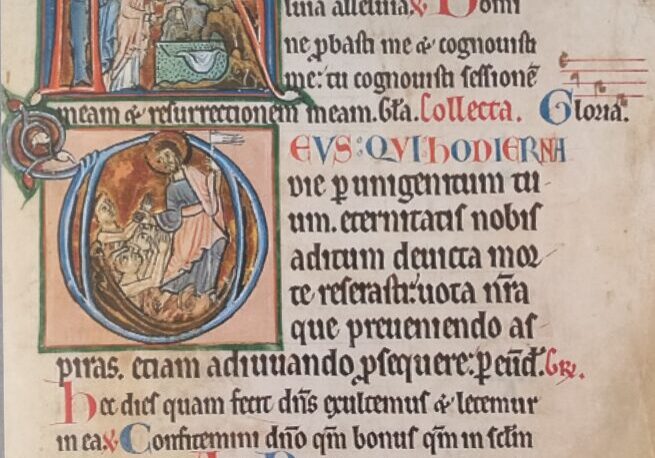 luia alleluia ℣ Domi
ne ꝓbasti me & cognouisti
me: tu cognouisti sessionē
meam & resurrectionem meam. Gła. Collecta. Gloria.
DEVS: QVI: hODIERNA
die ꝑ unigenitum tu-
um. eternitatis nobis
aditum deuicta mor-
te reserasti: uota nr̄a
que preueniendo as-
piras. etiam adiuuando ꝓsequere: ꝑ eūd. Gr̄.
hec dies quam fecit dn̄s exultemus & letemur
in ea ℣ Confitemini dn̄o qm̄ bonus qm̄ in sclm̄